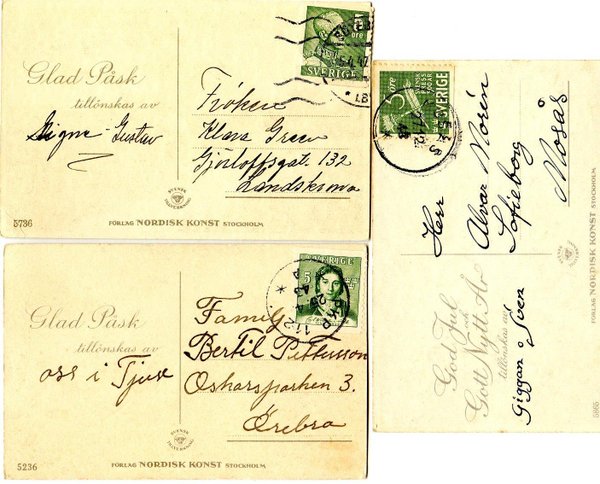 Glad Påsk
tillönskas av
Signe - Gustav
Fröken
Klara Green
Landskrona
SVERIGE
5736
FÖRLAG NORDISK KONST STOCKHOLM
SVENSK
TILLVERKNING
Glad Påsk
tillönskas av
oss i Tjust
Familj
Bertil Pettersson
Oskarsparken 3.
Örebro
SVERIGE
5
5236
FÖRLAG NORDISK KONST STOCKHOLM
SVENSK
TILLVERKNING
Herr
Alvar Norén
Sofieborg
Mosås
SVERIGE
God Jul
och
Gott Nytt År
tillönskas av
Giggan o Sven
5865
FÖRLAG NORDISK KONST STOCKHOLM